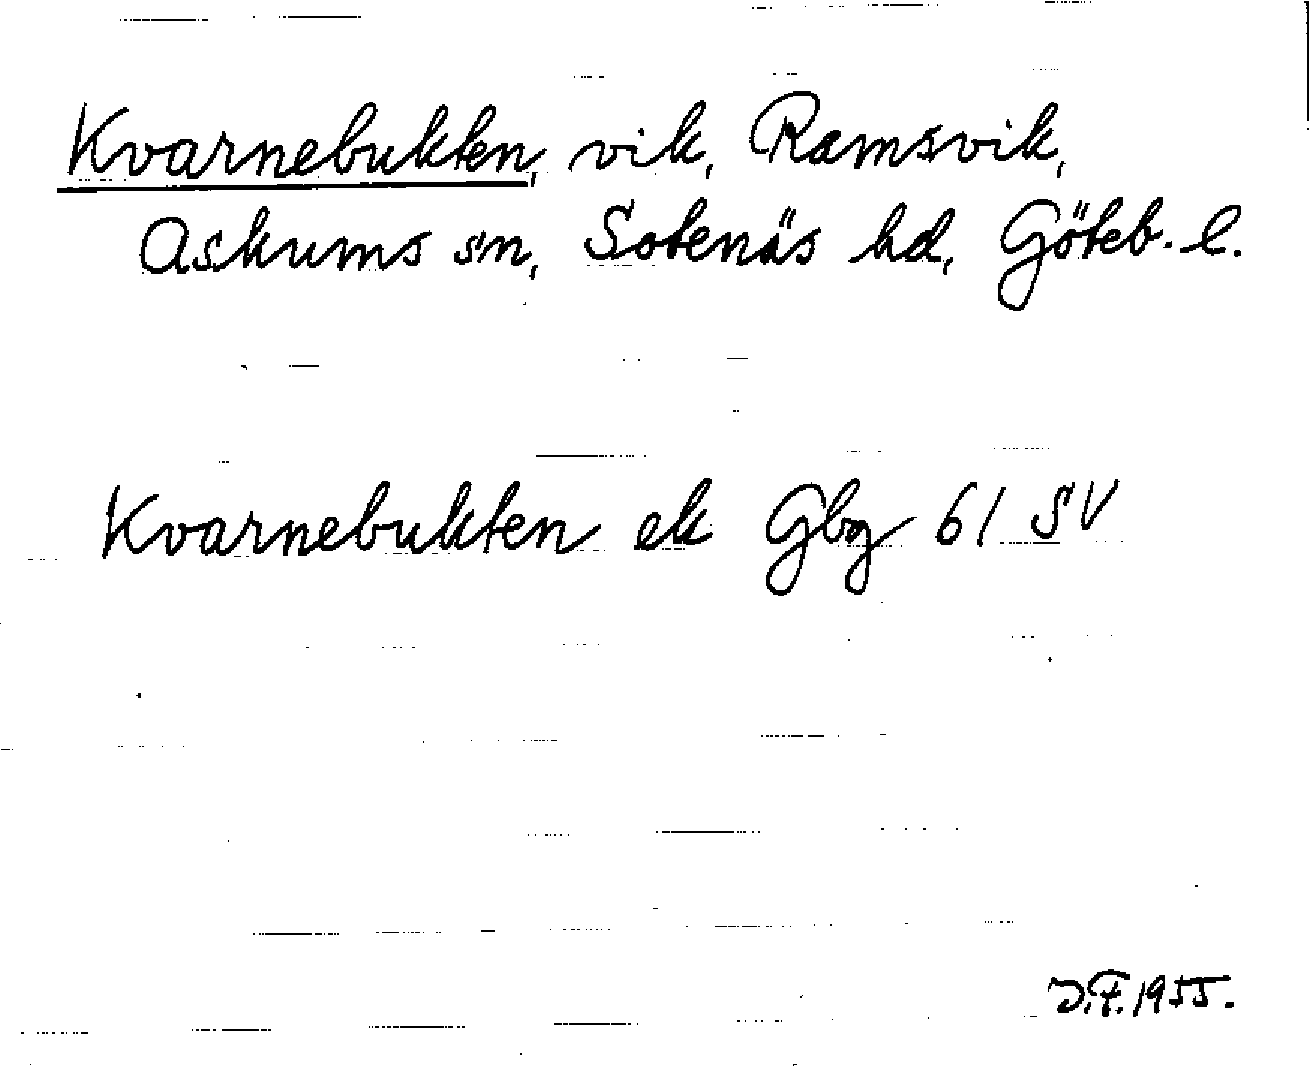 Kvarnebukten, vik, Ramsvik,
Askums sn, Sotenäs hd, Göteb. l.
Kvarnebukten ek Gbg 61 SV
D.F. 1955.